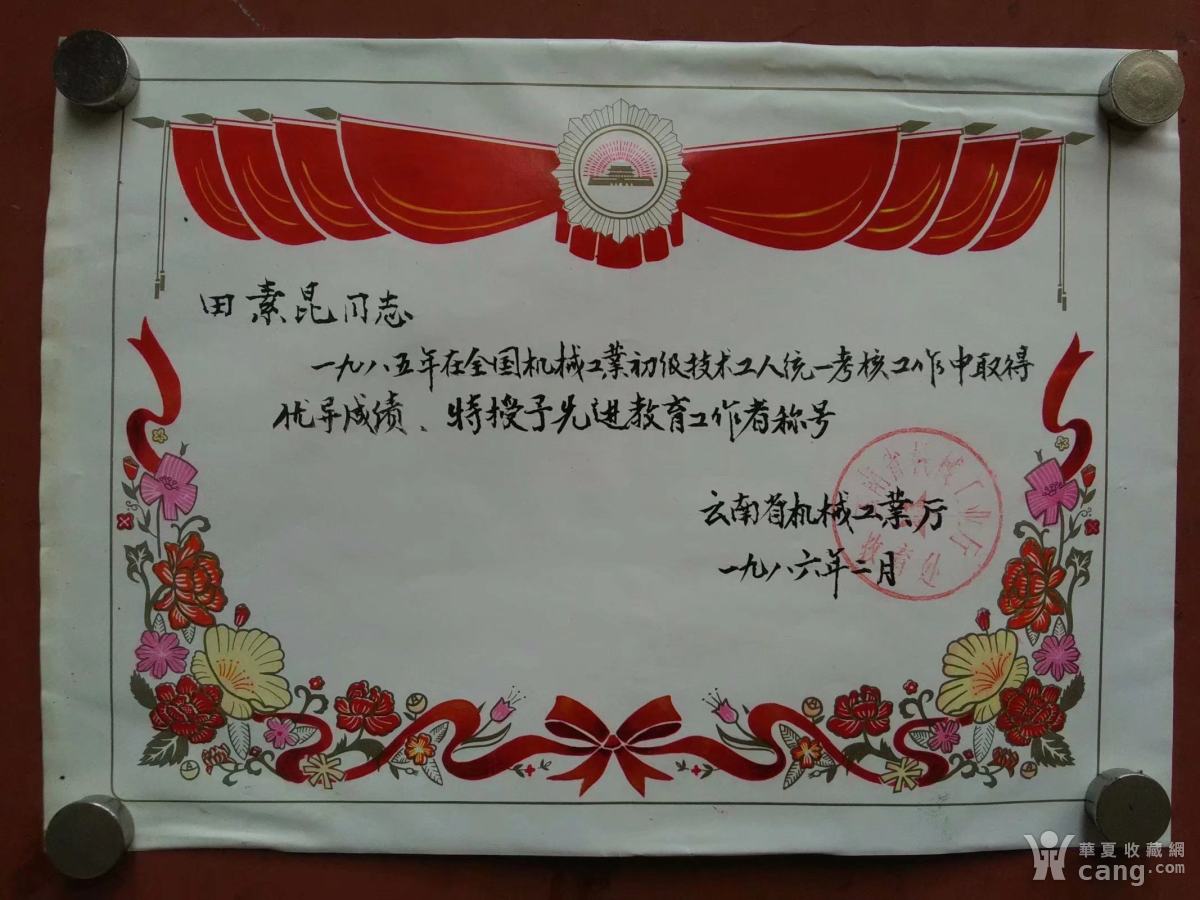 田素昆同志
一九八五年在全国机械工業初级技术工人统一考核工作中取得
优异成绩、特授予先进教育工作者称号
云南省机械工業厅
一九八六年二月
云南省机械工业厅
教育处
華夏收藏網
cang.com